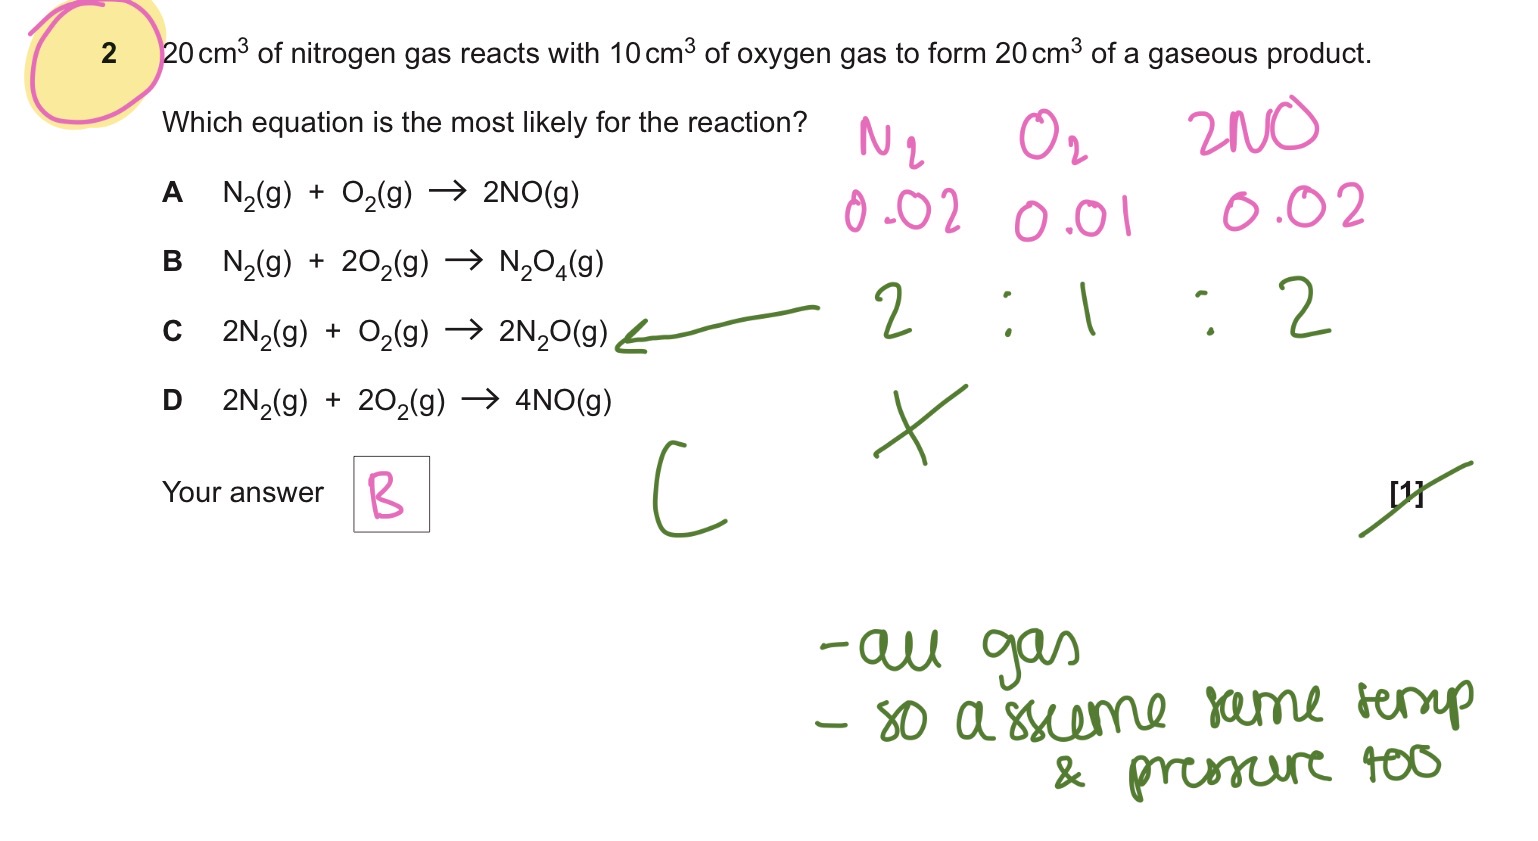 2 20 cm³ of nitrogen gas reacts with 10 cm³ of oxygen gas to form 20 cm³ of a gaseous product.
Which equation is the most likely for the reaction?
N₂ O₂ 2NO
A N₂(g) + O₂(g) → 2NO(g)
0.02 0.01 0.02
B N₂(g) + 2O₂(g) → N₂O₄(g)
C 2N₂(g) + O₂(g) → 2N₂O(g) ← 2 : 1 : 2
D 2N₂(g) + 2O₂(g) → 4NO(g)
Your answer B C [1]
- all gas
- so assume same temp
& pressure too